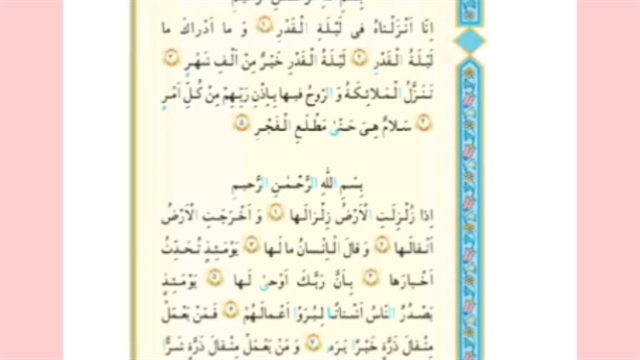 بِسْمِ اللهِ الرَّحْمٰنِ الرَّحیمِ
اِنّا اَنْزَلْناهُ فی لَیْلَةِ الْقَدْرِ ﴿۱﴾ وَ ما اَدْراكَ ما
لَیْلَةُ الْقَدْرِ ﴿۲﴾ لَیْلَةُ الْقَدْرِ خَیْرٌ مِنْ اَلْفِ شَهْرٍ ﴿۳﴾
تَنَزَّلُ الْمَلائِكَةُ وَ الرّوحُ فیها بِاِذْنِ رَبِّهِمْ مِنْ كُلِّ اَمْرٍ
﴿۴﴾ سَلامٌ هِیَ حَتّیٰ مَطْلَعِ الْفَجْرِ ﴿۵﴾
بِسْمِ اللهِ الرَّحْمٰنِ الرَّحیمِ
اِذا زُلْزِلَتِ الْاَرْضُ زِلْزالَها ﴿۱﴾ وَ اَخْرَجَتِ الْاَرْضُ
اَثْقالَها ﴿۲﴾ وَ قالَ الْاِنْسانُ ما لَها ﴿۳﴾ یَوْمَئِذٍ تُحَدِّثُ
اَخْبارَها ﴿۴﴾ بِاَنَّ رَبَّكَ اَوْحیٰ لَها ﴿۵﴾ یَوْمَئِذٍ
یَصْدُرُ النّاسُ اَشْتاتًا لِیُرَوْا اَعْمالَهُمْ ﴿۶﴾ فَمَنْ یَعْمَلْ
مِثْقالَ ذَرَّةٍ خَیْرًا یَرَهُ ﴿۷﴾ وَ مَنْ یَعْمَلْ مِثْقالَ ذَرَّةٍ شَرًّا